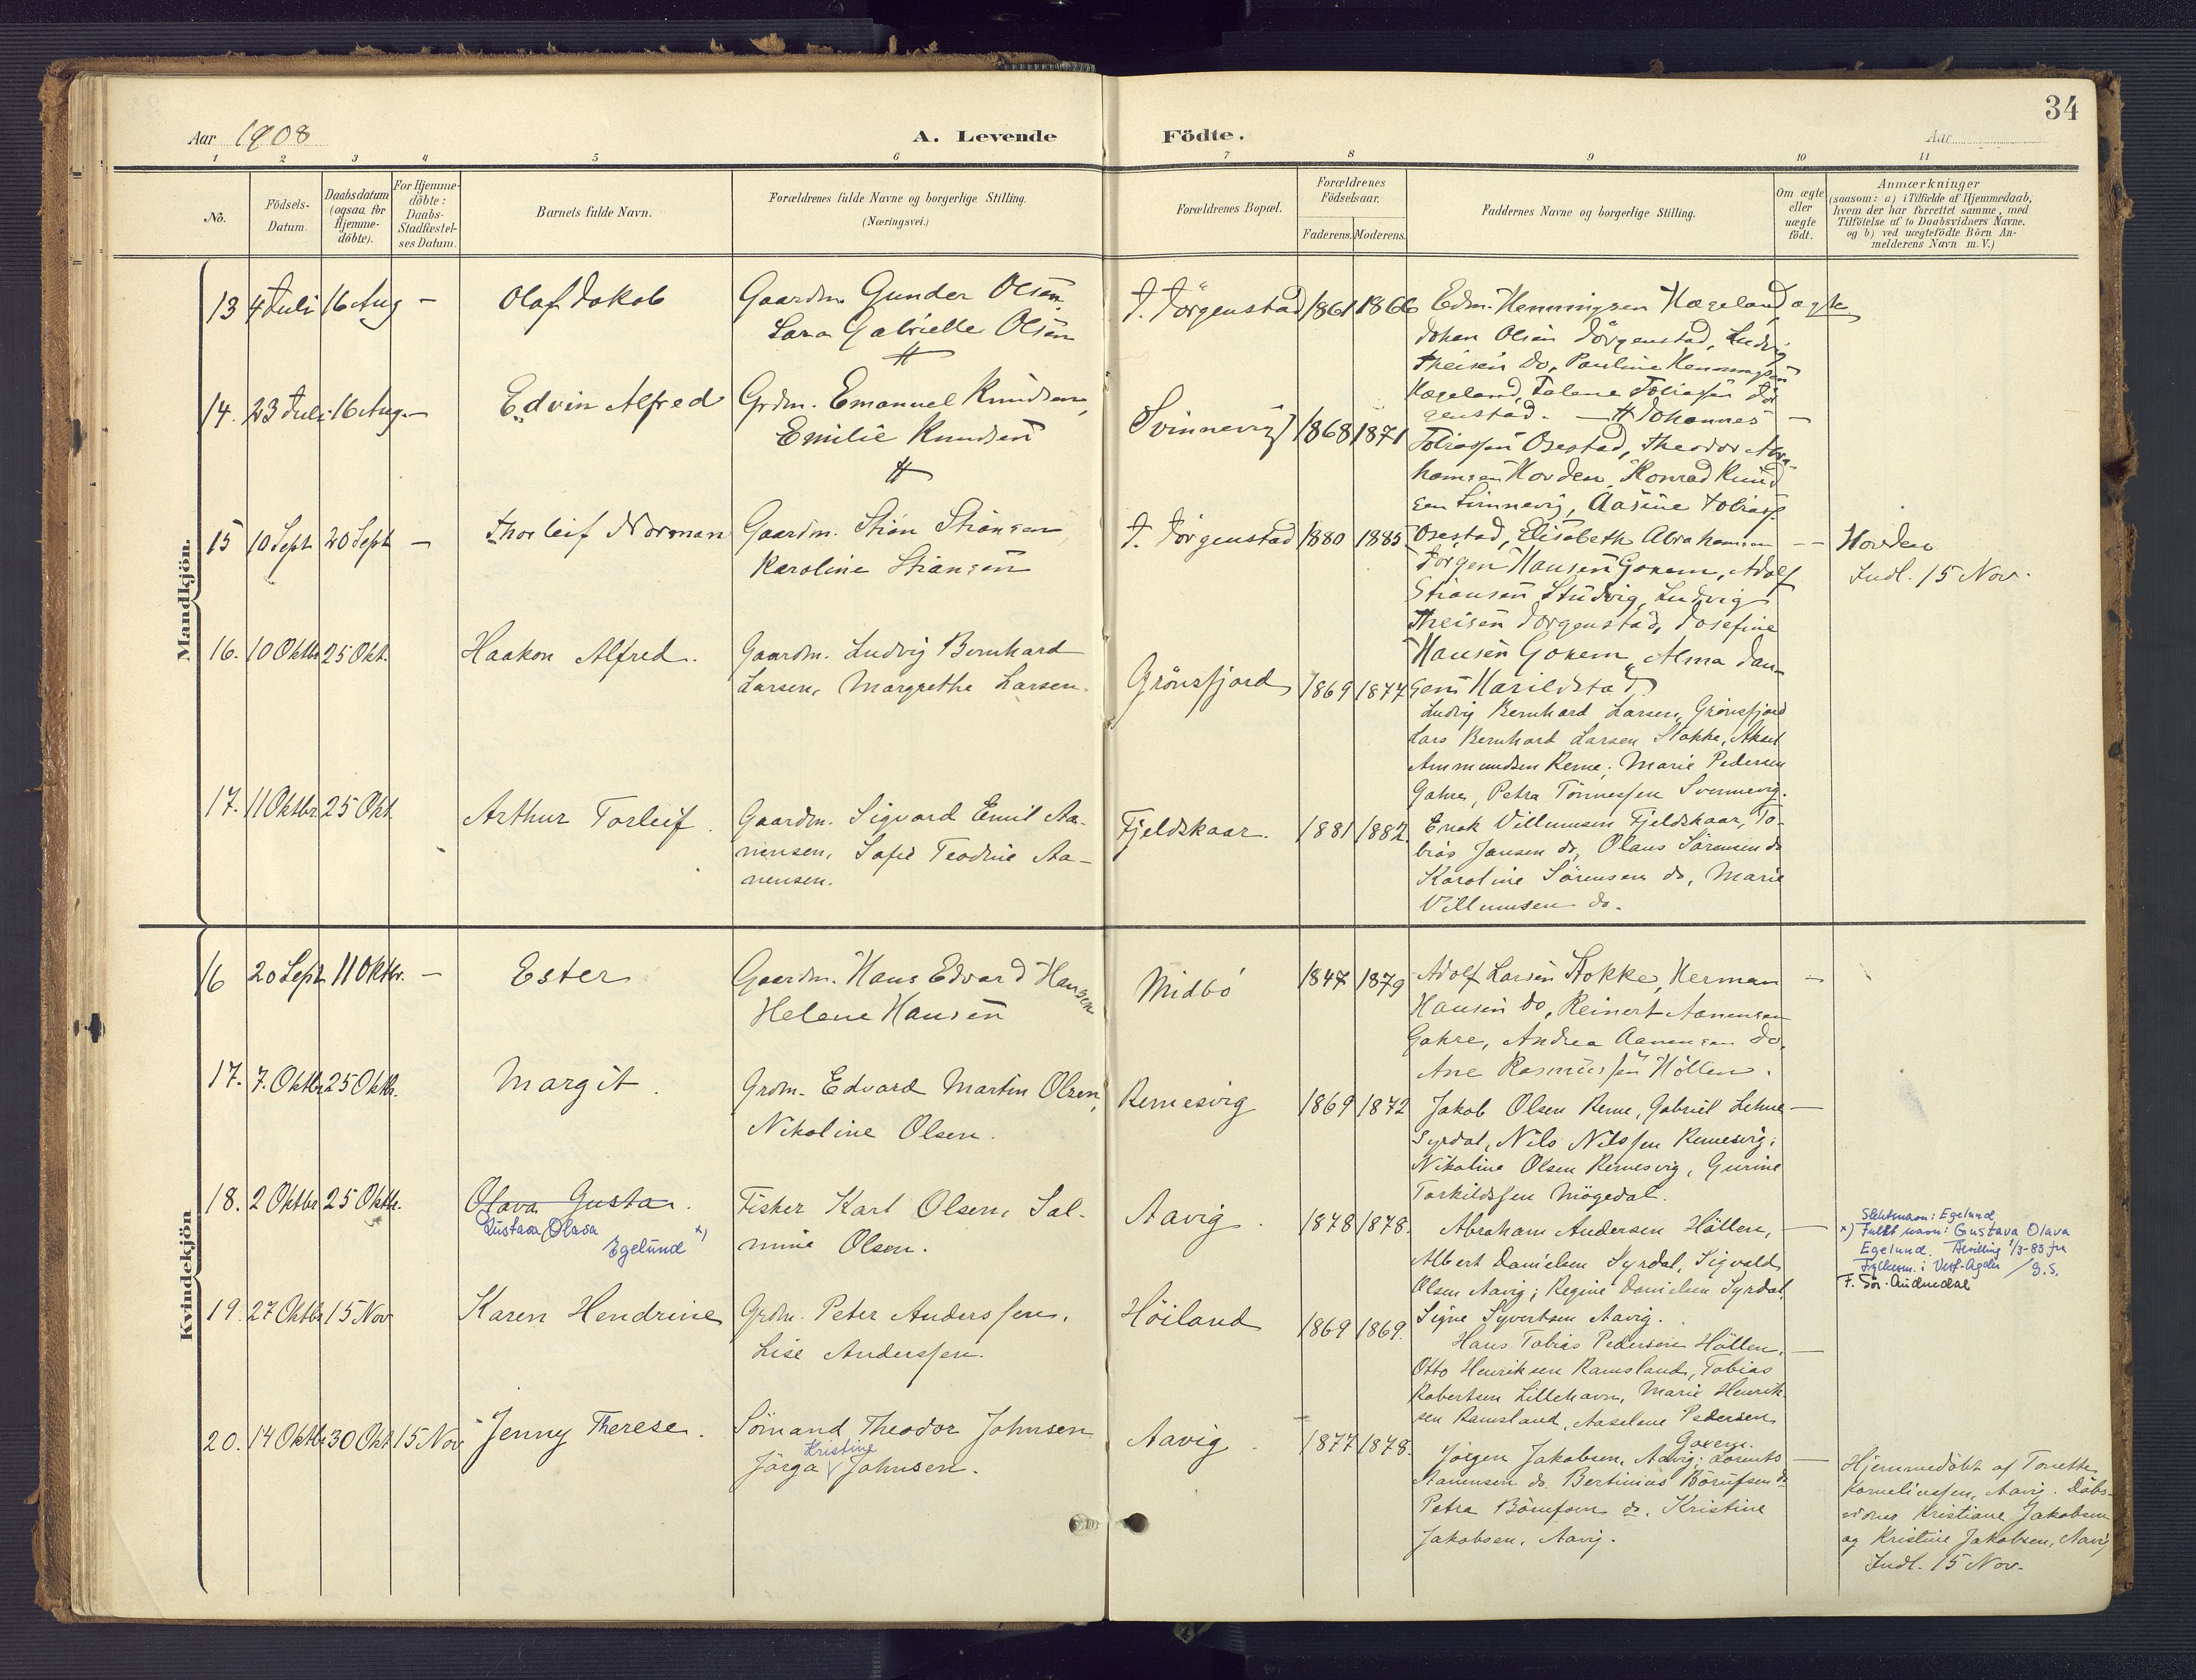 34
Aar 1908
A. Levende Födte.
Aar
1 2 3 4 5 6 7 8 9 10 11
No.
Födsels-
Datum.
Daabsdatum
(ogsaa for
Hjemme-
döbte).
For Hjemme-
döbte:
Daabs-
Stadfæstel-
ses Datum.
Barnets fulde Navn.
Forældrenes fulde Navne og borgerlige Stilling.
(Næringsvei.)
Forældrenes Bopæl.
Forældrenes
Födselsaar.
Faderens. Moderens.
Faddernes Navne og borgerlige Stilling.
Om ægte
eller
uægte
födt.
Anmærkninger
(saasom: a) i Tilfælde af Hjemmedaab,
hvem der har forrettet samme, med
Tilföielse af to Daabsvidners Navne.
og b) ved uægtefödte Börn An-
melderens Navn m.V.)
Mandkjön.
13 4 Juli 16 Aug - Olaf Jakob
Gaardm. Gunder Olsen
Lara Gabrielle Olsen
J. Jörgenstad 1861 1866
Edm. Henningsen Hægeland, ægte
Johan Olsen Jörgenstad, Ludvig
Theisen do, Pauline Henningsen
Hægeland, Talene Tobiassen Jör
genstad. - # Johannes -
14. 23 Juli 16 Aug. - Edvin Alfred
Grdm. Emanuel Knudsen,
Emilie Knudsen
Svinnevig 1868 1871
Tobiassen Osestad, Theodor Abra-
hamsen Hovden, Konrad Knud
sen Svinnevig, Aasine Tobiass.
Osestad, Elisabeth Abrahamsen - - Hovden
15 10 Sept 20 Sept - Thorleif Norman
Gaardm. Stian Stiansen,
Karoline Stiansen
J. Jörgenstad 1880 1885
Jörgen Hansen Goxem, Adolf
Stiansen Studvig, Ludvig
Theisen Jörgenstad, Josefine
Hansen Goxem, Alma Jan-
sen Harildstad
Indl. 15 Nov.
16. 10 Oktbr 25 Okt. Haakon Alfred.
Gaardm. Ludvig Bernhard
Larsen, Margrethe Larsen.
Grönsfjord 1869 1877
Ludvig Bernhard Larsen, Grönsfjord
Lars Bernhard Larsen Stokke, Aksel
Ammundsen Reme; Marie Pedersen
Gahre, Petra Tönnessen Svennevig.
17. 11 Oktbr. 25 Okt. Arthur Torleif.
Gaardm. Sigvard Emil Aa-
nensen, Sofie Teodine Aa-
nensen.
Fjeldskaar. 1881 1882.
Enok Villumsen Fjeldskaar, To-
bias Jansen do, Olaus Sörensen do
Karoline Sörensen do, Marie
Villumsen do.
Kvindekjön
16 20 Sept 11 Oktbr. - Ester
Gaardm. Hans Edvard Hansen
Helene Hansen
Midbö 1847 1879
Adolf Larsen Stokke, Herman -
Hansen do, Reinert Aanensen
Gahre, Andrea Aanensen do,
Ane Rasmussen Höllen.
17. 7. Oktbr 25 Oktbr. Margit.
Grdm. Edvard Martin Olsen,
Nikoline Olsen.
Remesvig 1869 1872
Jakob Olsen Reme, Gabriel Lehne -
Syrdal, Nils Nilssen Remesvig;
Nikoline Olsen Remesvig, Gurine
Torkildssen Mögedal.
18. 2 Oktbr 25 Oktbr. Olava Gusta.
Gustava Olava
Egelund x)
Fisker Karl Olsen, Sal-
mine Olsen.
Aavig. 1878 1878.
Abraham Andersen Höllen, -
Albert Danielsen Syrdal, Sigvald
Olsen Aavig; Regine Danielsen Syrdal,
Signe Syvertsen Aavig.
Slektsnavn: Egelund
x) Fullt navn: Gustava Olava
Egelund. Bevilling 1/3-83 fra
Fylkesm. i Vest-Agder / S.S.
F. Sör-Audnedal
19. 27 Oktbr 15 Nov Karen Hendrine
Grdm. Peter Anderssen,
Lise Anderssen.
Höiland 1869 1869.
Hans Tobias Pedersen Höllen, -
Otto Henriksen Ramsland, Tobias
Robertsen Lillehavn, Marie Henrik
sen Ramsland, Aaselene Pedersen
Goxem.
20. 14 Oktbr 30 Okt 15 Nov Jenny Therese.
Sömand Theodor Johnsen
Kristine
Jörga Johnsen.
Aavig. 1877 1878.
Jörgen Jakobsen, Aavig; Lorents -
Aanensen do. Bertinius Börufsen do
Petra Börufsen do, Kristine
Jakobsen, Aavig.
Hjemmedöbt af Tonette
Korneliussen, Aavig. Dåbs-
vidner Kristiane Jakobsen
og Kristine Jakobsen, Aavig
Indl. 15 Nov.